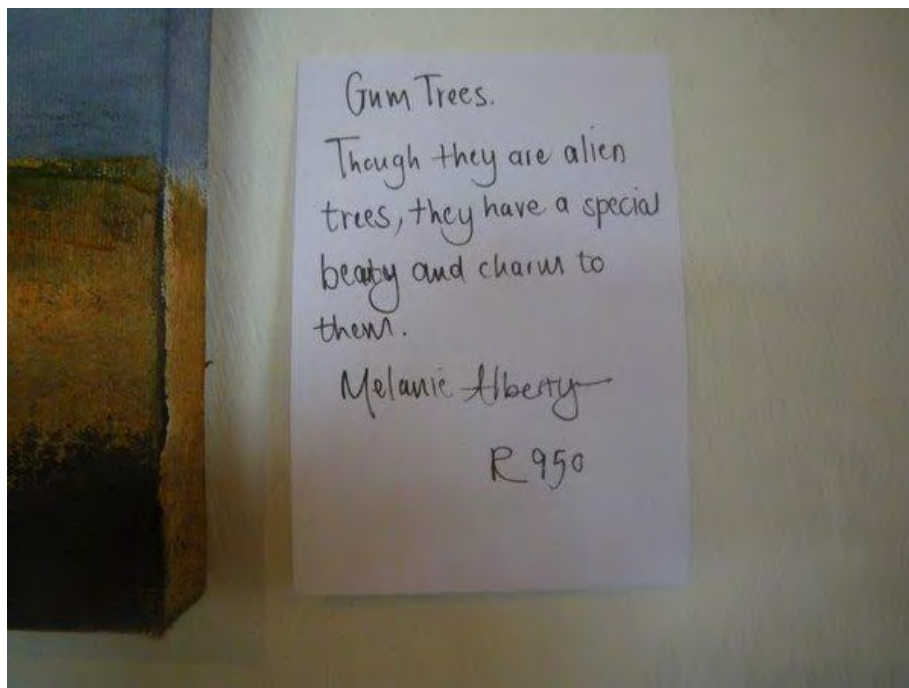 Gum Trees.
Though they are alien
trees, they have a special
beaty and charm to
them.
Melanie Alberty
R950